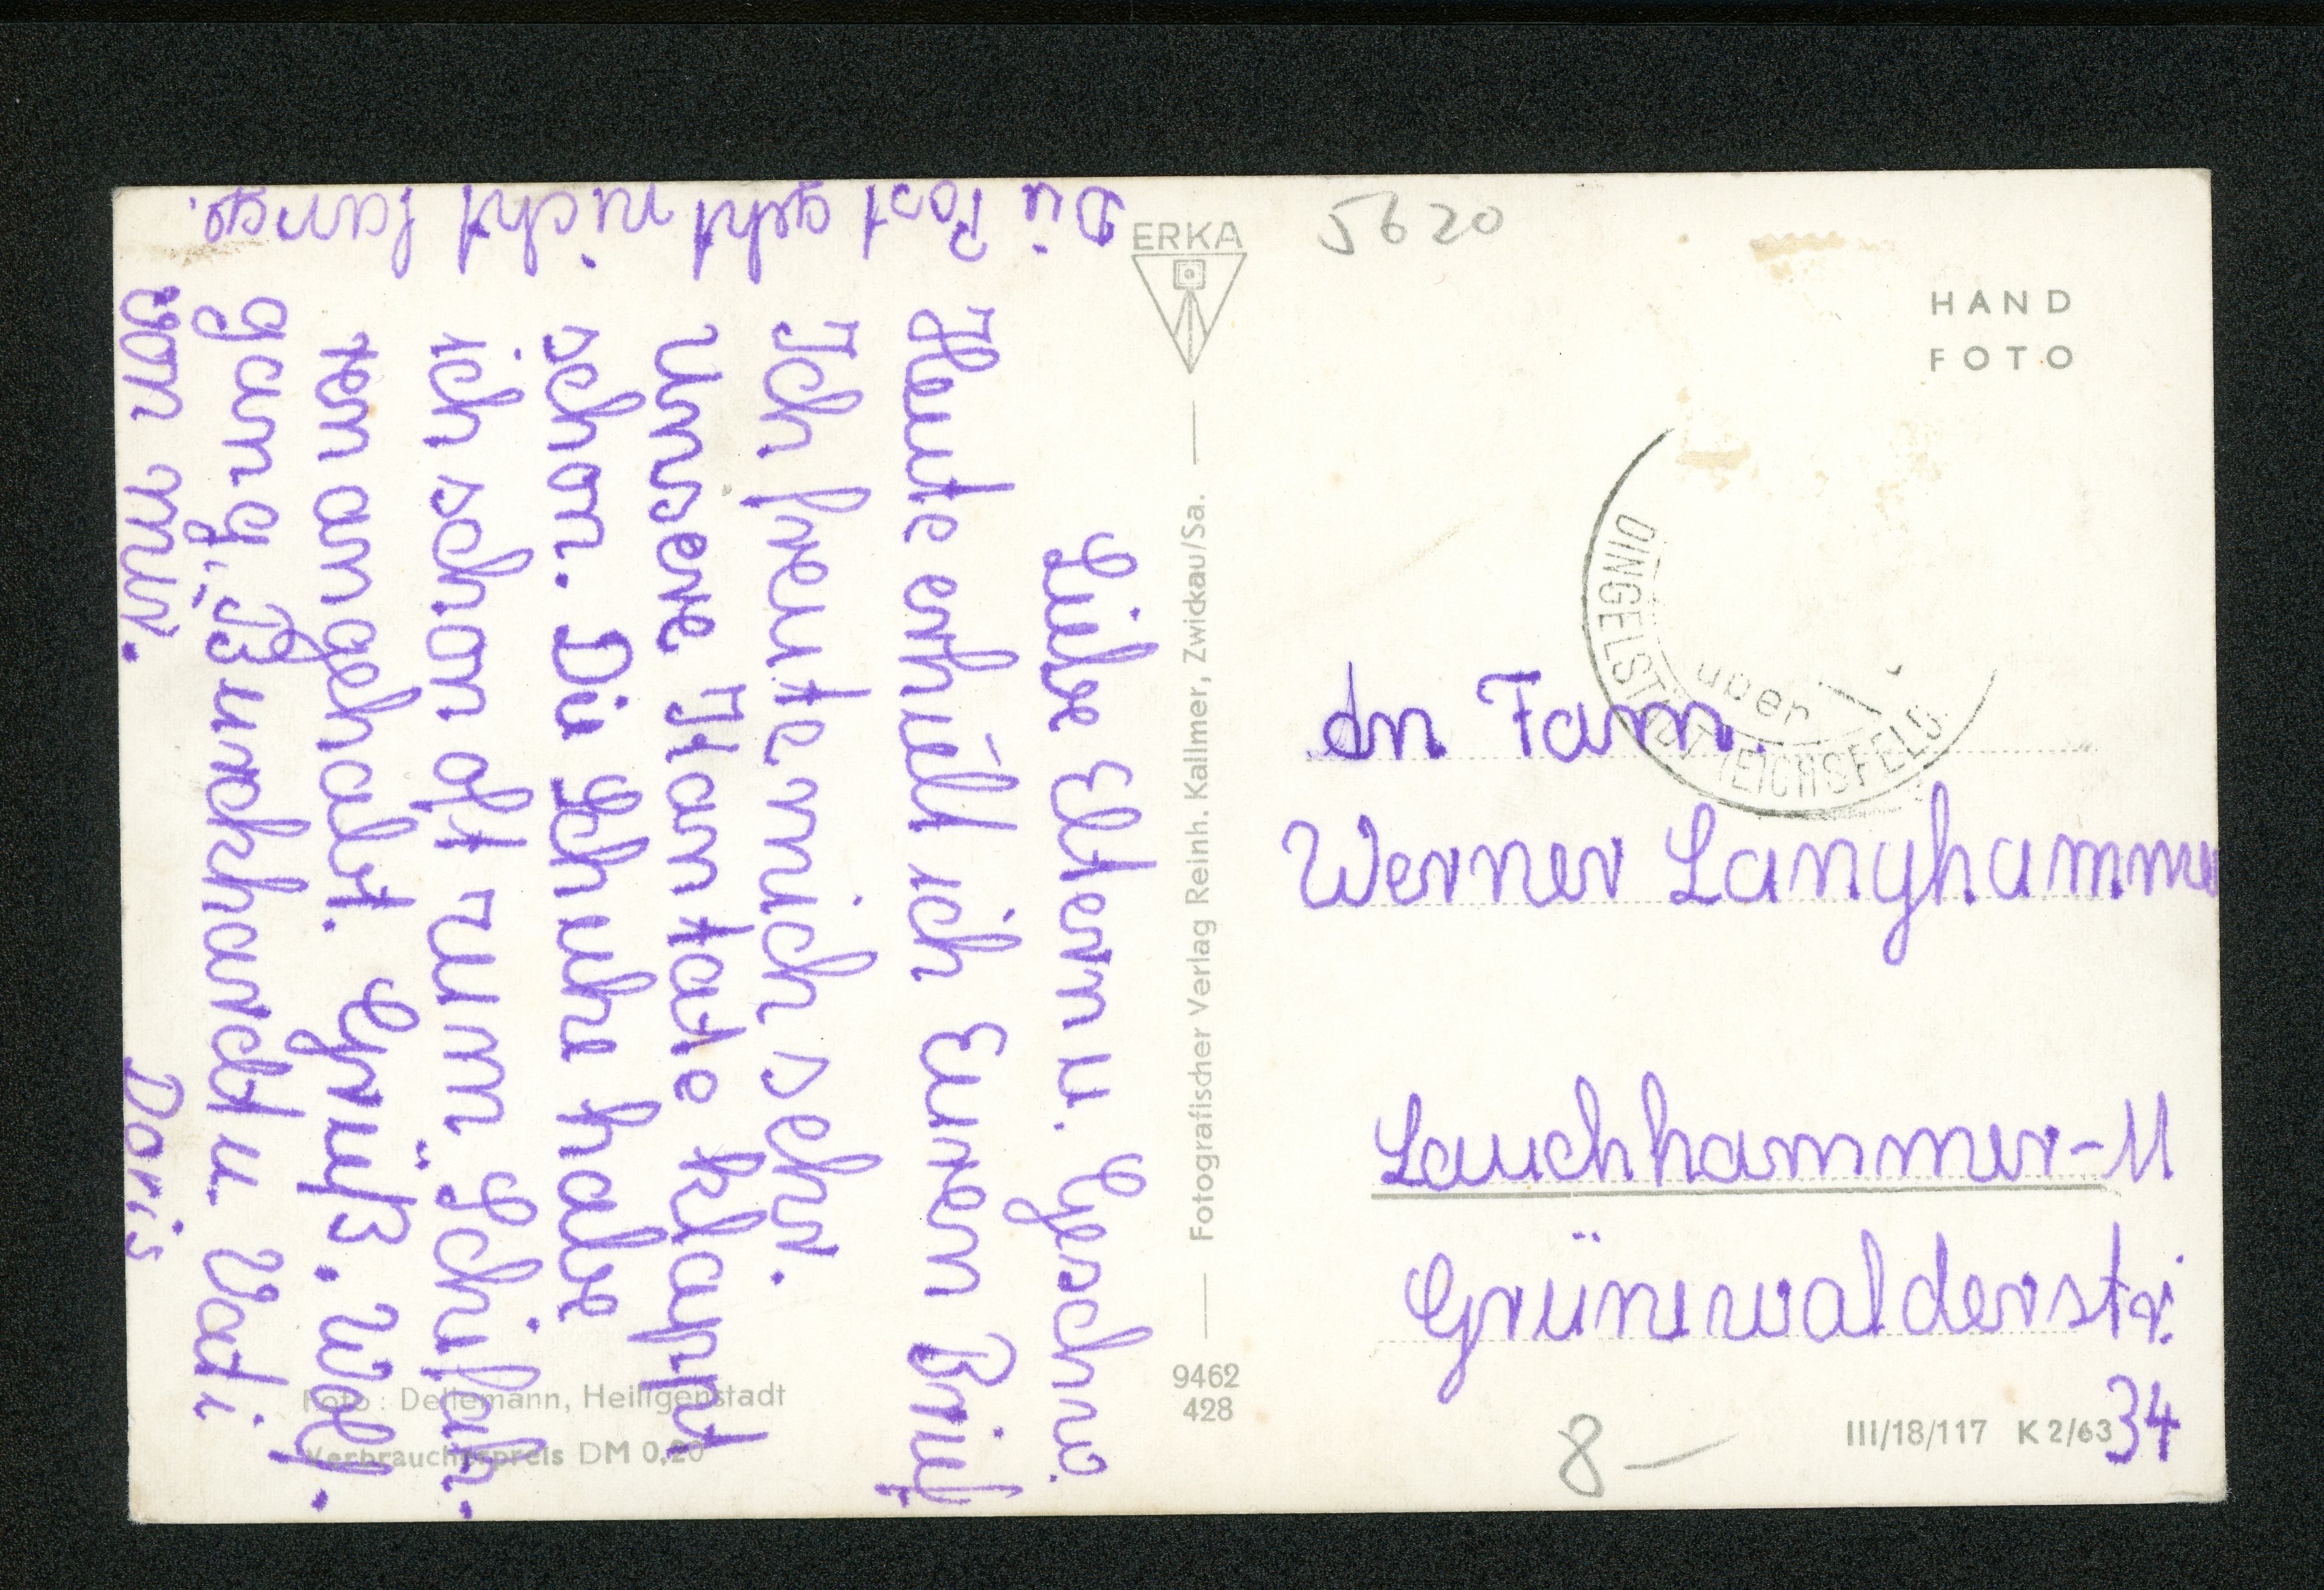 Liebe Eltern u. Geschw.
Heute erhielt ich Euren Brief
Ich freute mich sehr.
Unsere Hantate klappt
schon. Die Schuhe habe
ich schon oft zum Schifah-
ren angehabt. Grüß. Wolf-
gang, Burckhardt u. Vati
von mir. Doris
Die Post geht nicht lange.
ERKA
Fotografischer Verlag Reinh. Kallmer, Zwickau/Sa.
9462
428
Foto: Dellemann, Heiligenstadt
Verbraucherpreis DM 0,20
5620
HAND
FOTO
DINGELSTÄDT (EICHSFELD
über
An Fam.
Werner Langhammer
Lauchhammer-M
Grünewalderstr.
34
8-
III/18/117 K 2/63